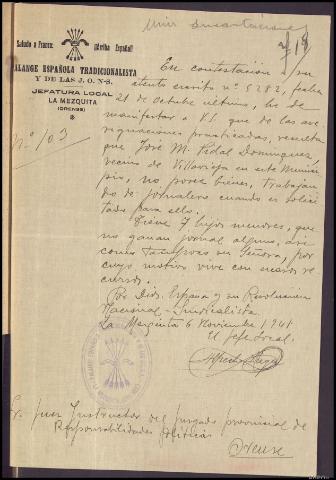 Unir incautaciones
Saludo a Franco: ¡Arriba España!
FALANGE ESPAÑOLA TRADICIONALISTA
Y DE LAS J. O. N-S.
JEFATURA LOCAL
LA MEZQUITA
(ORENSE)
Nº 103
En contestación a su
atento escrito nº 5282, fecha
21 de Octubre último, he de
manifestar a V.S. que de las ave
riguaciones practicadas, resulta
que José M. Pedal Dominguez,
vecino de Villavieja en este Munici
pio, no posee bienes, trabajan
do de jornalero cuando es solici
tado para ello.
Tiene 7 hijos menores, que
no ganan jornal alguno, así
como tampoco su señora, por
cuyo motivo vive con escasos re
cursos.
Por Dios, España y su Revolución
Nacional-Sindicalista.
La Mezquita 6 Noviembre 1941
El Jefe local.
Sr. Juez Instructor del Juzgado provincial de
Responsabilidades Políticas
Orense